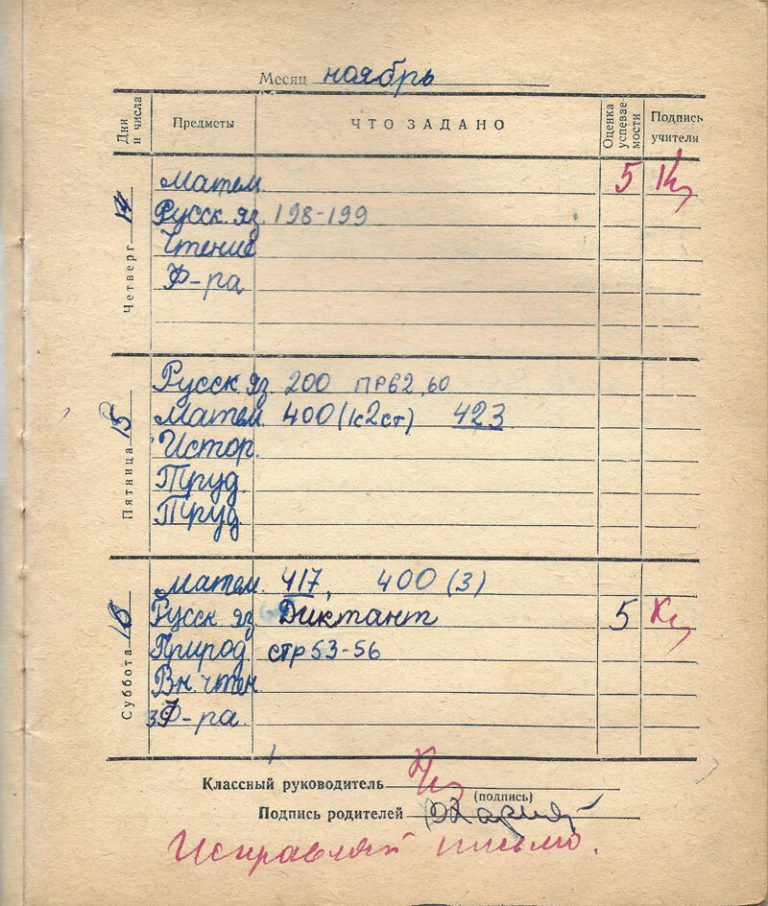 Месяц ноябрь
Дни и числа Предметы ЧТО ЗАДАНО Оценка успеваемости Подпись учителя
Четверг 14
Матем. 5
Русск. яз. 198-199
Чтение
Ф-ра
Пятница 15
Русск. яз. 200 ПР62, 60
Матем. 400 (1с2ст) 423
Истор.
Труд.
Труд.
Суббота 16
Матем. 417, 400 (3)
Русск яз Диктант 5
Природ. стр 53-56
Вн. чтен
Ф-ра.
Классный руководитель
(подпись)
Подпись родителей
Исправляй письмо.